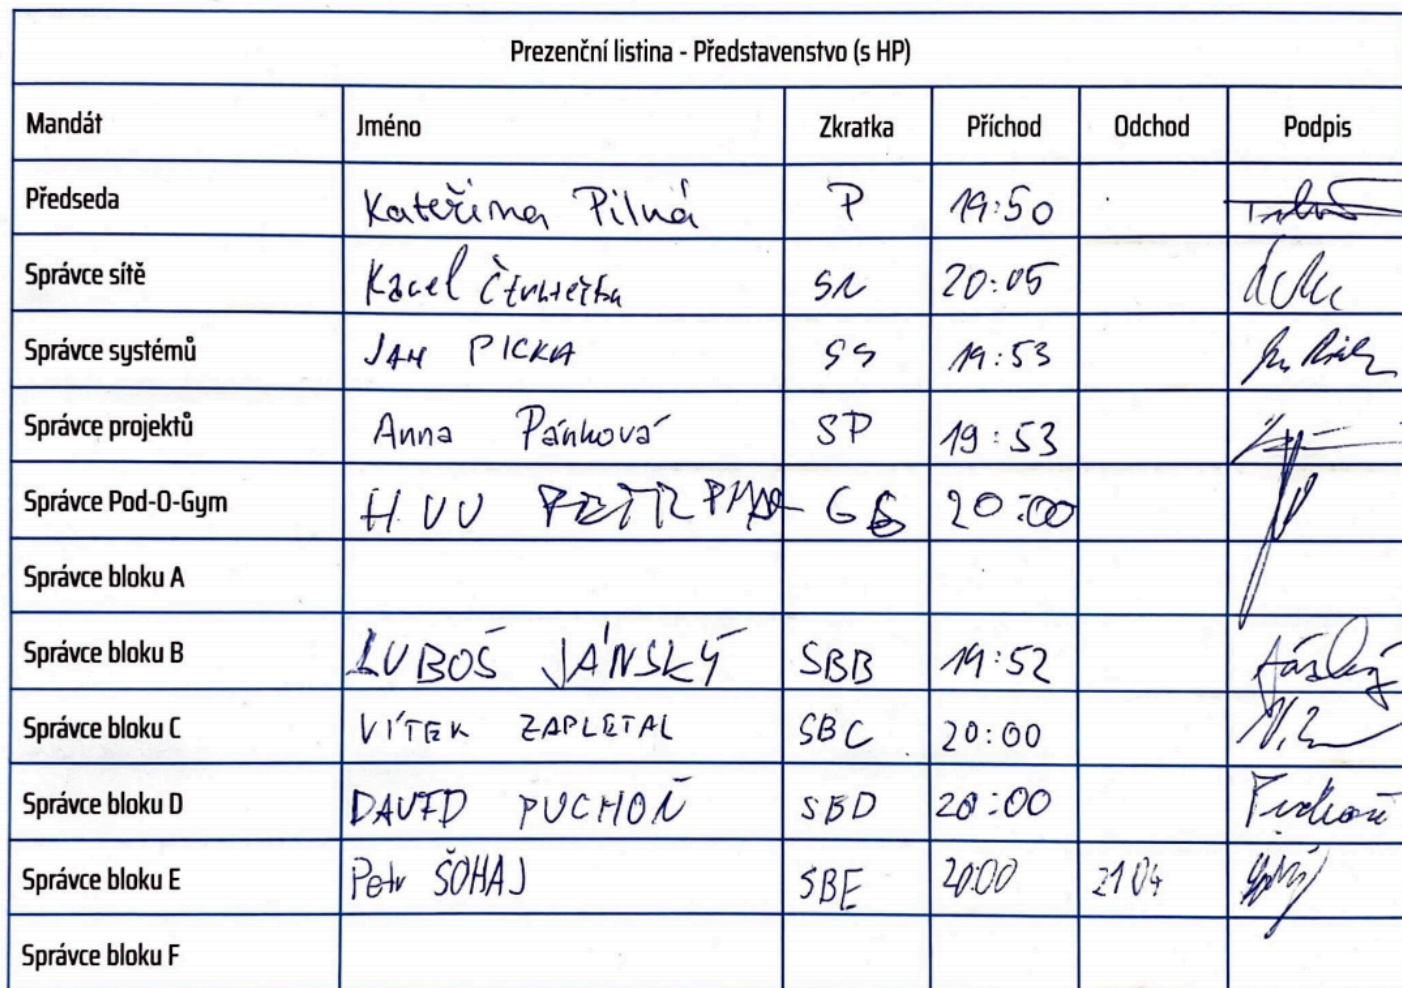 Prezenční listina - Představenstvo (s HP)
Mandát Jméno Zkratka Příchod Odchod Podpis
Předseda Kateřina Pilná P 19:50
Správce sítě Karel Čtvrtečka SN 20:05
Správce systémů JAN PICKA SS 19:53
Správce projektů Anna Pánková SP 19:53
Správce Pod-O-Gym 20:00
Správce bloku A
Správce bloku B LUBOŠ JÁNSKÝ SBB 19:52
Správce bloku C VÍTEK ZAPLETAL SBC 20:00
Správce bloku D DAVID PUCHOŇ SBD 20:00
Správce bloku E Petr ŠOHAJ SBE 20:00 21 04
Správce bloku F